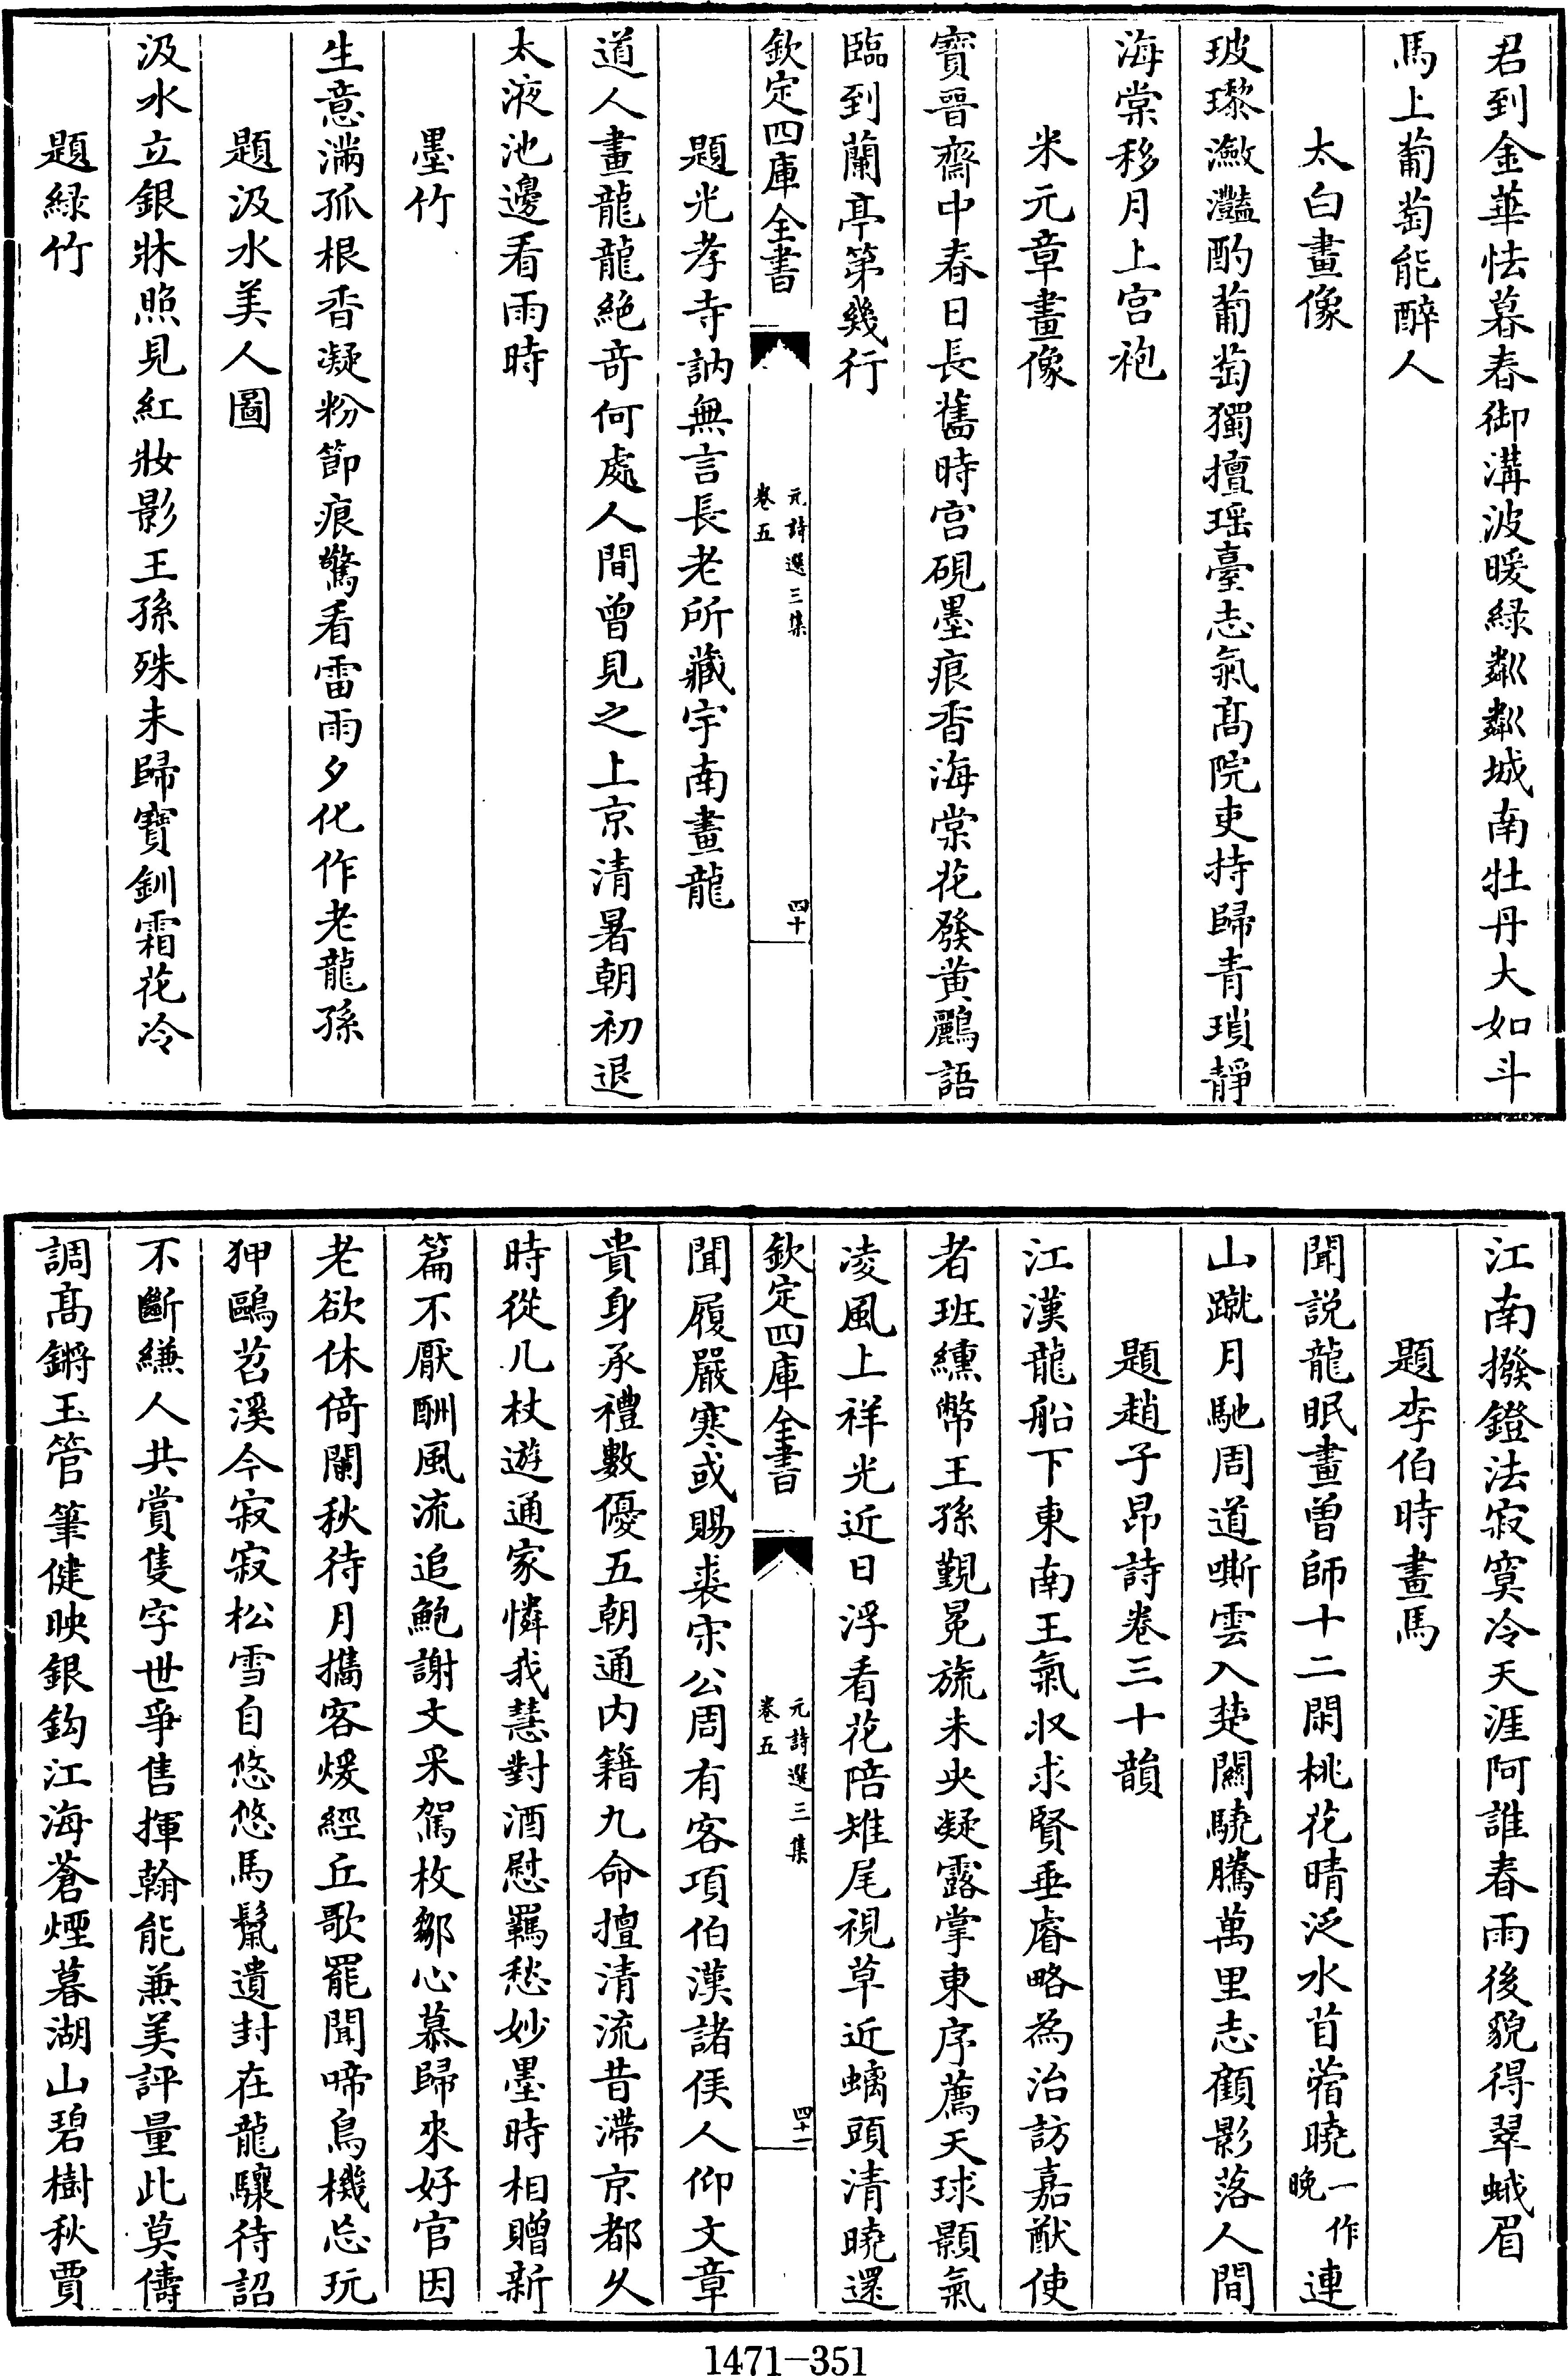 君到金華怯暮春御溝波暖緑粼粼城南牡丹大如斗
馬上葡萄能醉人
太白畫像
玻瓈瀲灩酌葡萄獨擅瑶臺志氣髙院吏持歸青瑣靜
海棠移月上宫袍
米元章畫像
寶晉齋中春日長舊時宫硯墨痕香海棠花發黄鸝語
臨到蘭亭第幾行
欽定四庫全書
元詩選三集
卷五
四十
題光孝寺訥無言長老所藏宇南畫龍
道人畫龍龍絶竒何處人間曾見之上京清暑朝初退
太液池邊看雨時
墨竹
生意滿孤根香凝粉節痕驚看雷雨夕化作老龍孫
題汲水美人圖
汲水立銀牀照見紅妝影王孫殊未歸寶釧霜花冷
題緑竹
江南撥鐙法寂寞冷天涯阿誰春雨後貌得翠蛾眉
題李伯時畫馬
聞説龍眠畫曽師十二閑桃花晴泛水苜蓿曉一作晩連
山蹴月馳周道嘶雲入楚關驍騰萬里志顧影落人間
題趙子昂詩卷三十韻
江漢龍船下東南王氣収求賢垂睿略為治訪嘉猷使
者班纁幣王孫覲冕旒未央凝露掌東序薦天球顥氣
凌風上祥光近日浮看花陪雉尾視草近螭頭清曉還
欽定四庫全書
元詩選三集
卷五
四十一
聞履嚴寒或賜裘宋公周有客項伯漢諸侯人仰文章
貴身承禮數優五朝通内籍九命擅清流昔滯京都久
時從几杖遊通家憐我慧對酒慰羈愁妙墨時相贈新
篇不厭酬風流追鮑謝文采駕枚鄒心慕歸來好官因
老欲休倚闌秋待月擕客煖經丘歌罷聞啼鳥機忘玩
狎鷗苕溪今寂寂松雪自悠悠馬鬛遺封在龍驤待詔
不斷縑人共賞隻字世爭售揮翰能兼美評量此莫儔
調髙鏘玉管筆健映銀鈎江海蒼煙暮湖山碧樹秋賈
1471-351